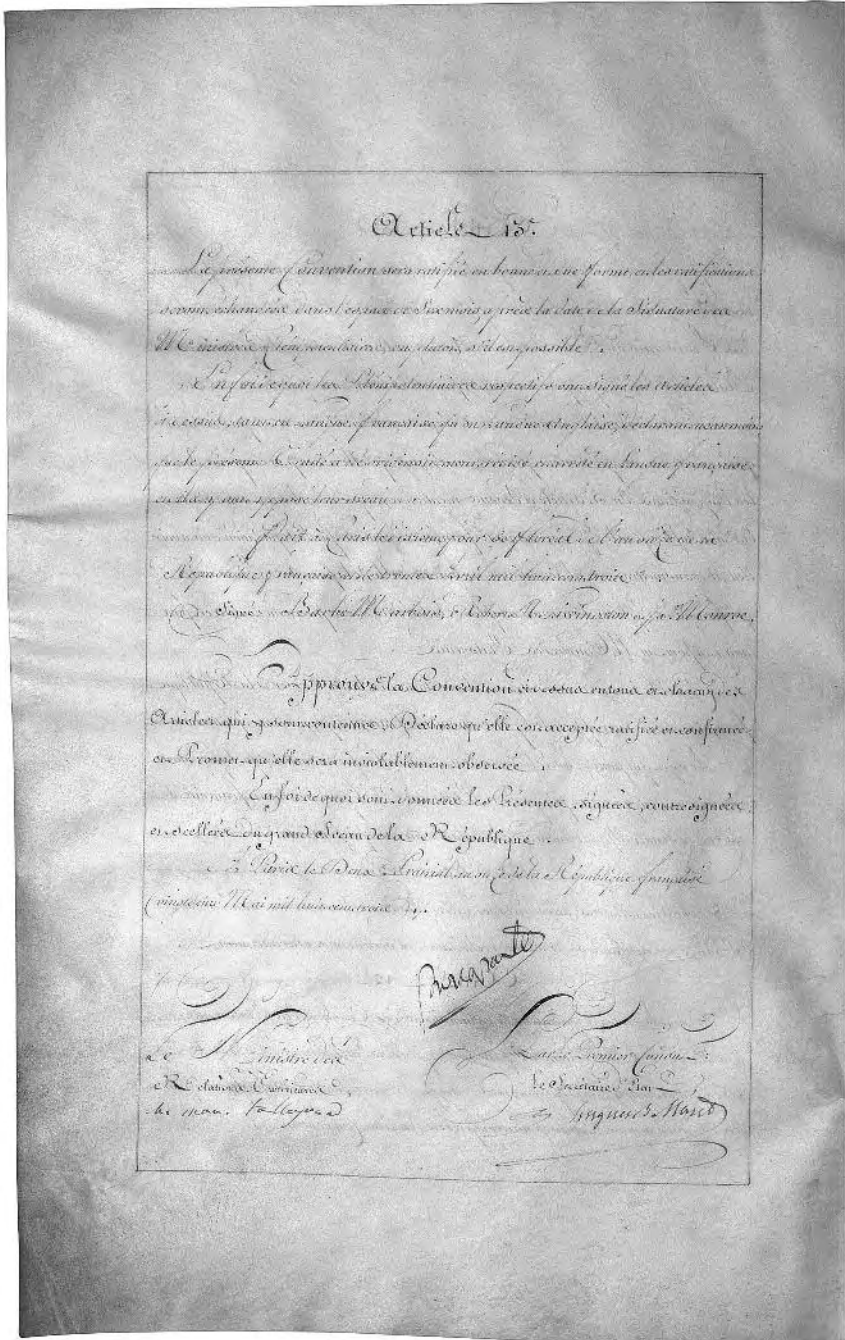 Article 13e.
La présente Convention sera ratifiée en bonne et due forme, et les ratifications
seront échangées dans l'espace de Six mois, après la date de la Signature des
Ministres Plénipotentiaires, ou plutôt, s'il est possible.
En foi de quoi les Plénipotentiaires respectifs ont signé les Articles
ci-dessus, tant en langue française, qu'en langue Anglaise, déclarant néanmoins
que le présent Traité a été originairement rédigé et arrêté en Langue française;
et ils y ont apposé leur Sceau.
fait à Paris le dixième jour de floréal de l'an onze de la
République française, et le trente Avril mil huit cent trois.
Signé Barbé Marbois, Robert R. Livingston et Ja. Monroe.
Approuve la Convention ci dessus en tous et chacun des
Articles qui y sont contenus; Déclare qu'elle est acceptée ratifiée et confirmée
et Promet qu'elle sera inviolablement observée.
En foi de quoi sont données les Présentes, signées, contresignées
et scellées du grand Sceau de la République.
à Paris le Deux Prairial an onze de la République française
(vingt deux Mai mil huit cent trois).
Bonaparte
Le Ministre des
Par le Premier Consul:
Relations Extérieures
le Secrétaire d'Etat
ch. mau. talleyrand
hugues b. Maret